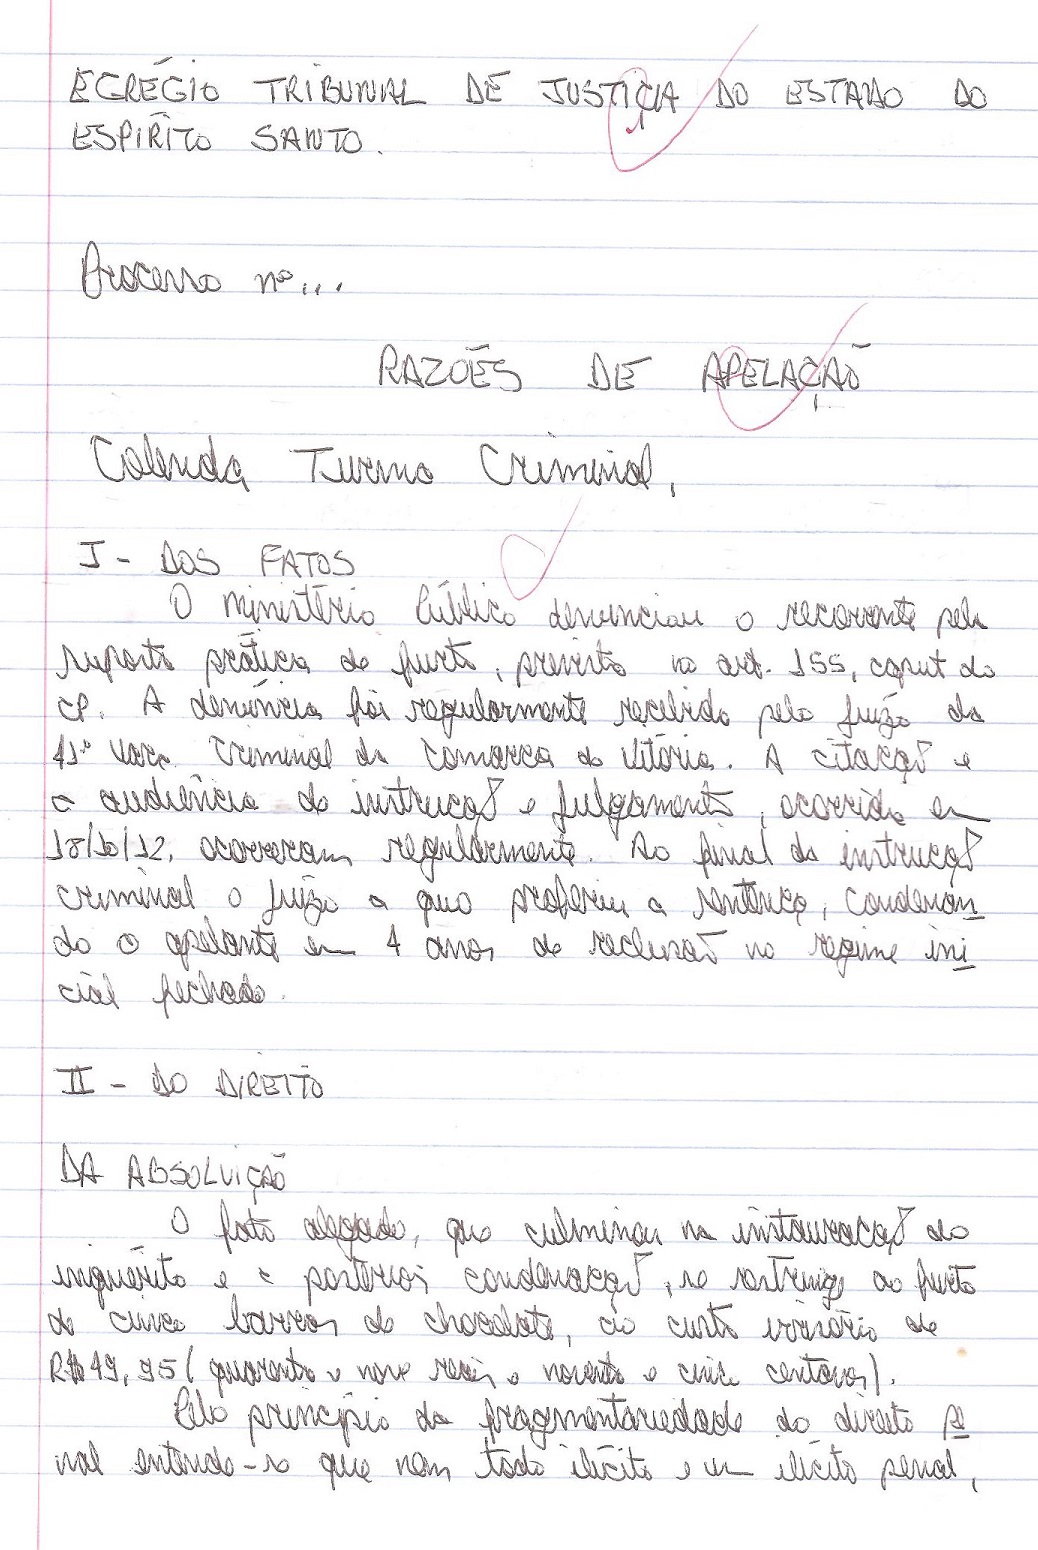 EGRÉGIO TRIBUNAL DE JUSTIÇA DO ESTADO DO
ESPÍRITO SANTO.
Processo nº...
RAZÕES DE APELAÇÃO
Colenda Turma Criminal,
I - DOS FATOS
O Ministério Público denunciou o recorrente pela
suposta prática de furto, previsto no art. 155, caput do
CP. A denúncia foi regularmente recebida pelo juízo da
41ª Vara Criminal da Comarca de Vitória. A citação e
a audiência de instrução e julgamento, ocorrida em
18/10/12, ocorreram regularmente. Ao final da instrução
criminal o juízo a quo proferiu a sentença, condenan
do o apelante em 4 anos de reclusão no regime ini
cial fechado.
II - DO DIREITO
DA ABSOLVIÇÃO
O fato alegado, que culminou na instauração do
inquérito e a posterior condenação, se restringe ao furto
de cinco barras de chocolate, ao custo irrisório de
R$ 49,95 (quarenta e nove reais e noventa e cinco centavos).
Pelo princípio da fragmentariedade do direito pe
nal entende-se que nem todo ilícito é um ilícito penal,